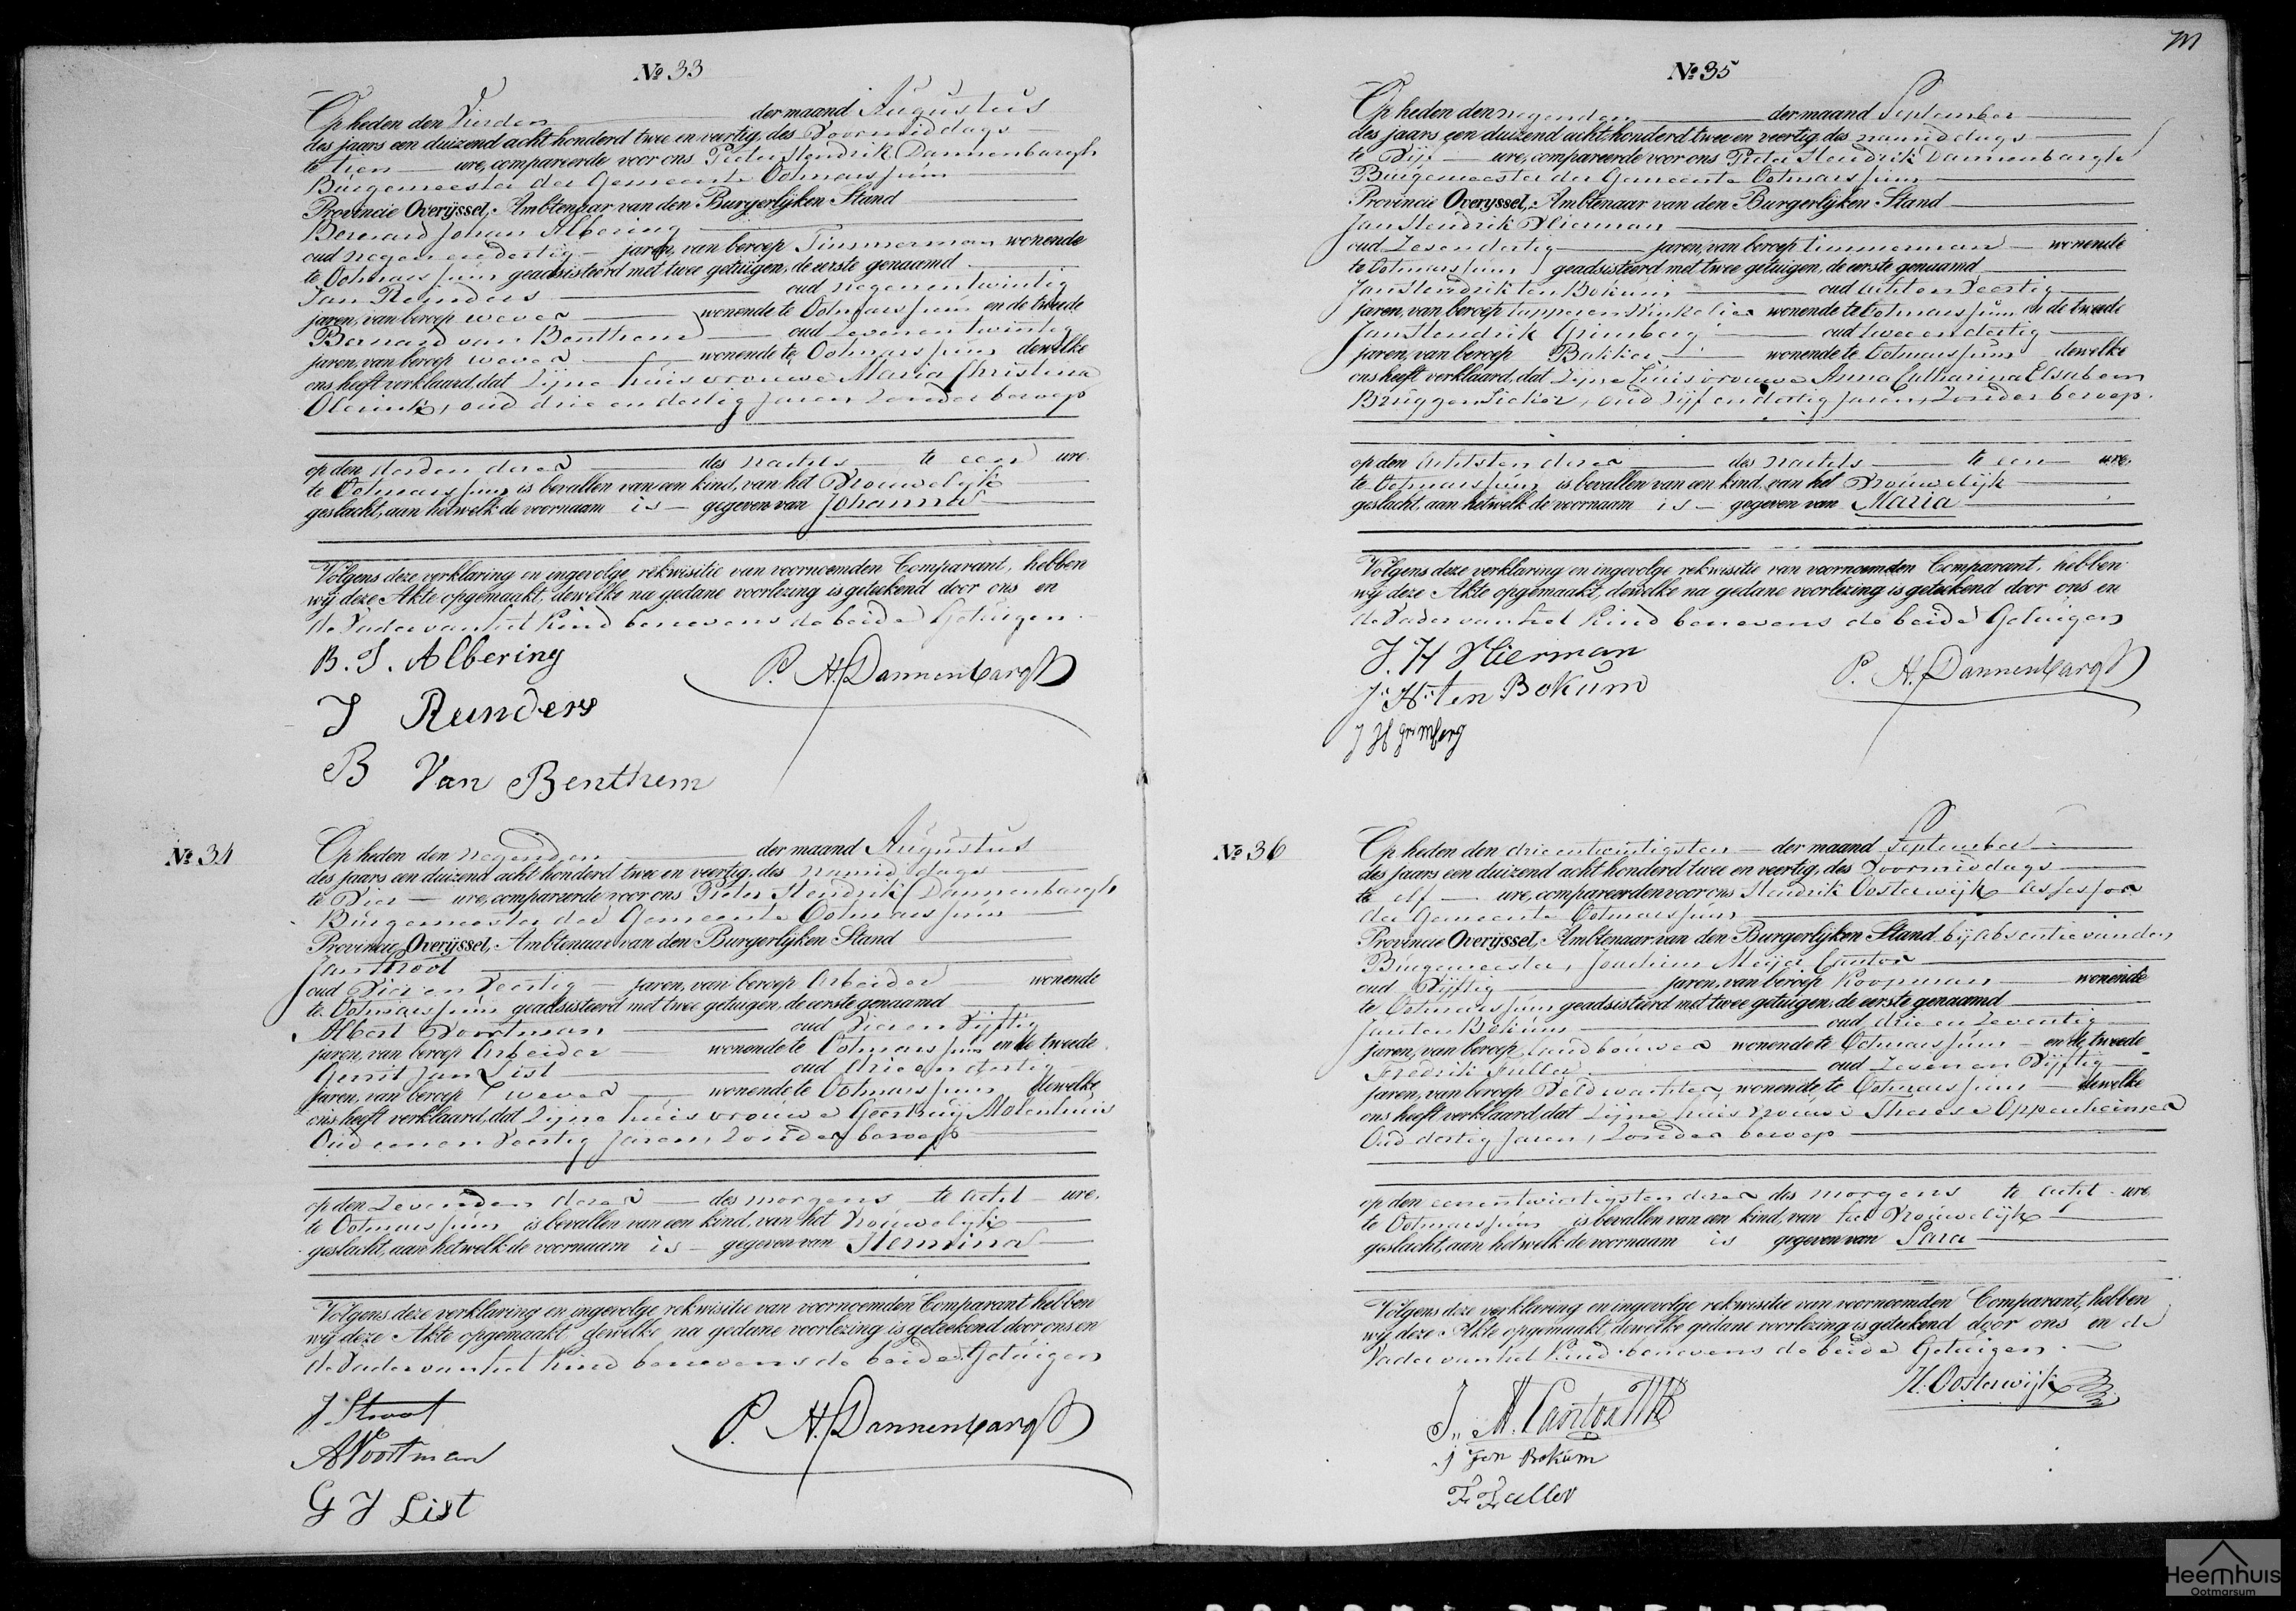 № 33
Op heden den Vierden der maand Augustus
des jaars een duizend acht honderd twee en veertig, des Voormiddags
te tien ure, compareerde voor ons Pieter Hendrik Dannenbargh
Burgemeester der Gemeente Ootmarssum
Provincie Overijssel, Ambtenaar van den Burgerlijken Stand
Berenard Johan Albering
oud negen en dertig jaren, van beroep Timmerman wonende
te Ootmarssum geadsisteerd met twee getuigen, de eerste genaamd
Jan Reijnders oud negenentwintig
jaren, van beroep wever wonende te Ootmarssum en de tweede
Bernard van Benthem oud zevenentwintig
jaren, van beroep wever wonende te Ootmarssum dewelke
ons heeft verklaard, dat Zijne huisvrouwe Maria Christina
Olerink, oud drie en dertig jaren zonder beroep
op den derden dezer des nachts te een ure
te Ootmarssum is bevallen van een kind, van het Vrouwelijk
geslacht, aan hetwelk de voornaam is gegeven van Johanna
Volgens deze verklaring en ingevolge rekwisitie van voornoemden Comparant, hebben
wij deze Akte opgemaakt, dewelke na gedane voorlezing is geteekend door ons en
de Vader van het Kind benevens de beide Getuigen
B. J. Albering
P. H. Dannenbargh
J Reinders
B Van Benthem
№ 34
Op heden den negenden der maand Augustus
des jaars een duizend acht honderd twee en veertig, des namiddags
te Vier ure, compareerde voor ons Pieter Hendrik Dannenbargh
Burgemeester der Gemeente Ootmarssum
Provincie Overijssel, Ambtenaar van den Burgerlijken Stand
Jan Stroot
oud Vier en Veertig jaren, van beroep Arbeider wonende
te Ootmarssum geadsisteerd met twee getuigen, de eerste genaamd
Albert Voortman oud Vier en Vijftig
jaren, van beroep Arbeider wonende te Ootmarssum en de tweede
Gerrit Jan List oud drie en dertig
jaren, van beroep wever wonende te Ootmarssum dewelke
ons heeft verklaard, dat Zijne huisvrouwe Geertruij Molenhuis
Oud een en Veertig jaren, zonder beroep
op den Zevenden dezer des morgens te acht ure.
te Ootmarssum is bevallen van een kind, van het Vrouwelijk
geslacht, aan hetwelk de voornaam is gegeven van Hermina
Volgens deze verklaring en ingevolge rekwisitie van voornoemden Comparant hebben
wij deze Akte opgemaakt dewelke na gedane voorlezing is geteekend door ons en
de Vader van het Kind benevens de beide Getuigen
J Stroot
P. H. Dannenbargh
A Voortman
G J List
№ 35
Op heden den negenden der maand September
des jaars een duizend acht honderd twee en veertig, des namiddags
te Vijf ure, compareerde voor ons Pieter Hendrik Dannenbargh
Burgemeester der Gemeente Ootmarssum
Provincie Overijssel, Ambtenaar van den Burgerlijken Stand
Jan Hendrik Vlierman
oud Zesendertig jaren, van beroep timmerman wonende
te Ootmarssum geadsisteerd met twee getuigen, de eerste genaamd
Jan Hendrik ten Bokum oud acht en Veertig
jaren, van beroep tapper en Winkelier wonende te Ootmarssum en de tweede
Jan Hendrik Grimberg oud twee en dertig
jaren, van beroep Bakker wonende te Ootmarssum dewelke
ons heeft verklaard, dat Zijne huisvrouwe Anna Catharina Elsabem
Bruggensieker, oud Vijf en dertig jaren, zonder beroep.
op den achtsten dezer des nachts te een ure
te Ootmarssum is bevallen van een kind van het Vrouwelijk
geslacht, aan hetwelk de voornaam is gegeven van Maria
Volgens deze verklaring en ingevolge rekwisitie van voornoemden Comparant, hebben
wij deze Akte opgemaakt, dewelke na gedane voorlezing is geteekend door ons en
de Vader van het Kind benevens de beide Getuigen
J. H Vlierman
P. H. Dannenbargh
J. H. ten Bokum
J H Grimberg
№ 36
Op heden den drieentwintigsten der maand September
des jaars een duizend acht honderd twee en veertig, des Voormiddags
te elf ure, compareerden voor ons Hendrik Oosterwijk Assessor
der Gemeente Ootmarssum
Provincie Overijssel, Ambtenaar van den Burgerlijken Stand bij absentie van den
Burgemeester, Joachim Meijer Cantor
oud Vijftig jaren, van beroep Koopman wonende
te Ootmarssum geadsisteerd met twee getuigen, de eerste genaamd
Jan ten Bokum oud drie en Zeventig
jaren, van beroep Landbouwer wonende te Ootmarssum en de tweede
Fredrik Fuller oud Zeven en Vijftig
jaren, van beroep Veldwachter, wonende te Ootmarssum dewelke
ons heeft verklaard, dat Zijne huisvrouwe Therese Oppenheimer
Oud dertig jaren, zonder beroep
op den eenentwintigsten dezer des morgens te acht ure
te Ootmarssum is bevallen van een kind, van het Vrouwelijk
geslacht, aan hetwelk de voornaam is gegeven van Sara
Volgens deze verklaring en ingevolge rekwisitie van voornoemden Comparant, hebben
wij deze Akte opgemaakt, dewelke gedane voorlezing is geteekend door ons en de
Vader van het Kind benevens de beide Getuigen.
H. Oosterwijk
J. M. Cantor
J Ten Bokum
F. Fuller
Heemhuis
Ootmarsum